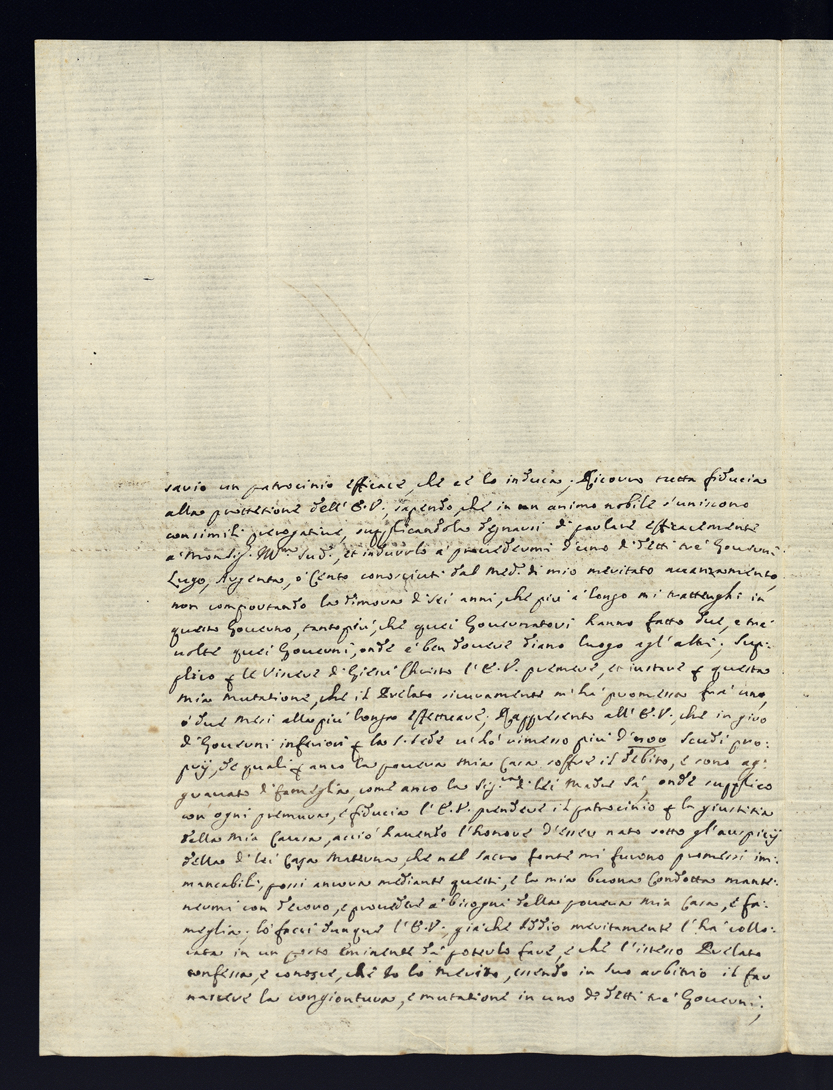 savio un patrocinio efficace, che cè lo induca; Ricorro tutta fiducia
alla protettione dell' E.V., sapendo, che in un animo nobile s'uniscono
consimili prerogative, supplicandola degnarsi di parlare efficacemente
à Monsig.r Sud.o, et indurlo à provedermi d'uno di detti trè Governi
Lugo, Argenta, ò Cento conosciuti dal Med.o di mio meritato avanzamento,
non comportando la dimora di sei anni, che più à longo mi trattenghi in
questo Governo, tanto più, che quei Governatori hanno fatto due, e trè
volte quei Governi, onde è ben dovere diano luogo agl'altri; Sup:
plico per le Viscere di Giesù Christo l'E.V. premere, et instare per questa
mia mutatione, che il Prelato sicuramente m'hà promessa frà uno,
ò due mesi alla più longa effettuare; Rappresento all'E.V., che in giro
di Governi inferiori per la S. Sede ci hò rimesso più d' Scudi pro:
prij, de quali per anco la povera mia Casa soffre il debito, e sono ag:
gravato di fameglia, come anco la Sig.ra di lei Madre sà, onde supplico
con ogni premura, e fiducia l'E.V. prendere il patrocinio per la giustitia
della mia Causa, acciò havendo l'honore d'esser nato sotto gl'auspicij
della di lei Casa Materna, che nel sacro fonte mi furono promessi im:
mancabili, possi ancora mediante questi, e la mia buona Condotta mante:
nermi con decoro, e provedere à bisogni della povera mia Casa, e fa:
meglia; lo facci dunque l'E.V., già che Iddio meritamente l'hà collo:
cata in un posto eminente dà poterlo fare, e che l'istesso Prelato
confessa, e conosce, che Io lo merito, essendo in suo arbitrio il far
nascere la congiontura, e mutatione in uno di detti trè Governi;